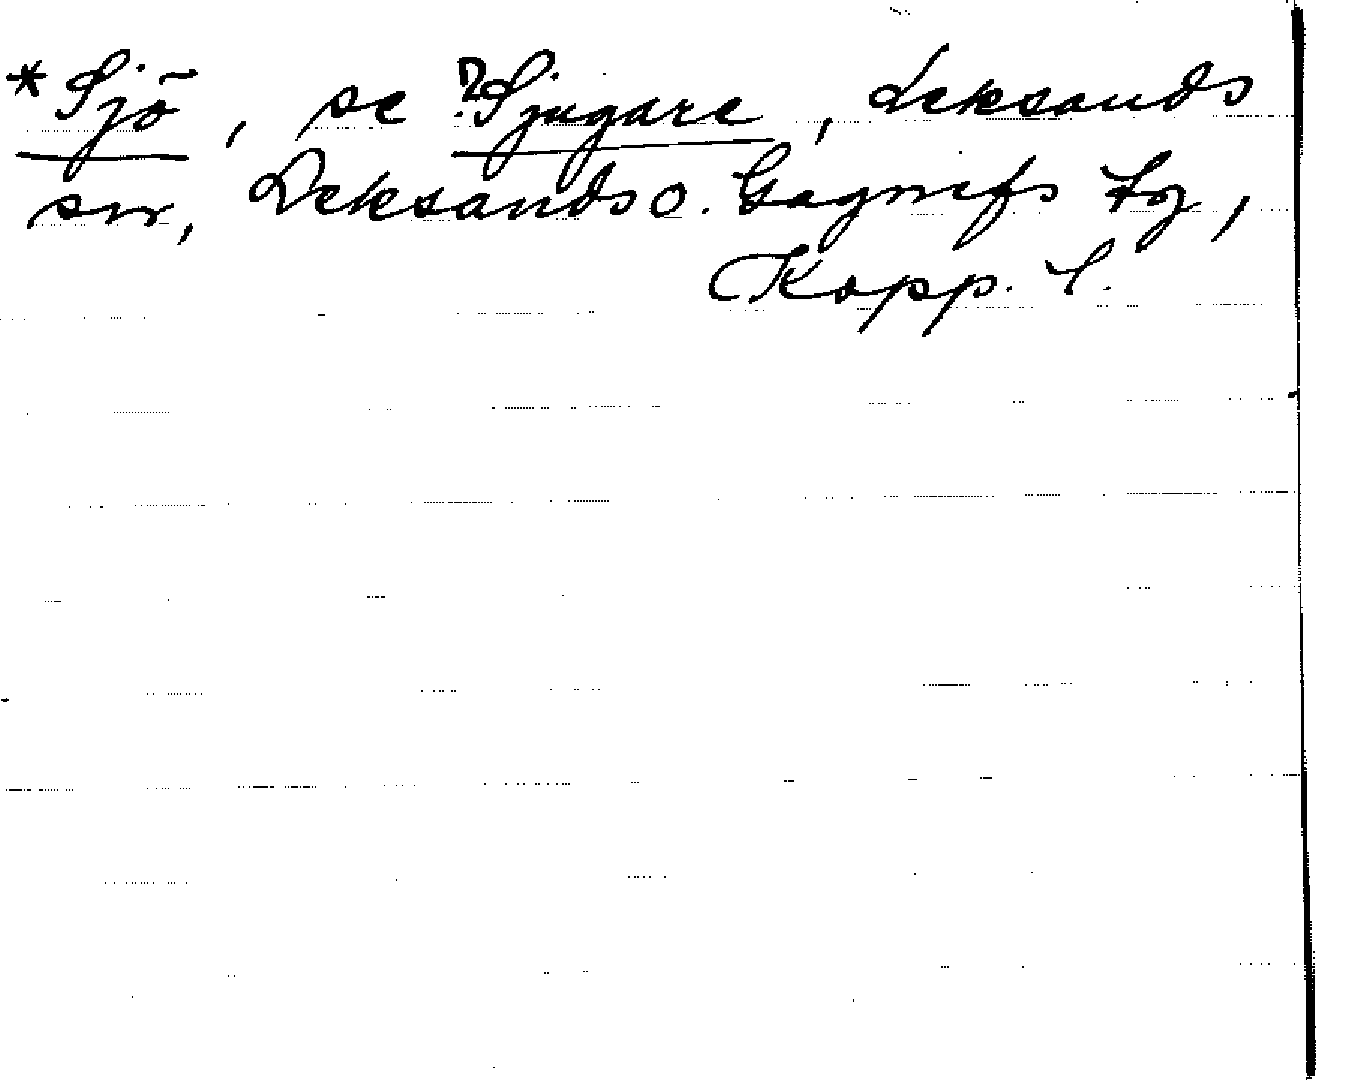 *Sjö, se ?Sjugare, Leksands
sn, Leksands o. Gagnefs tg,
Kopp. l.